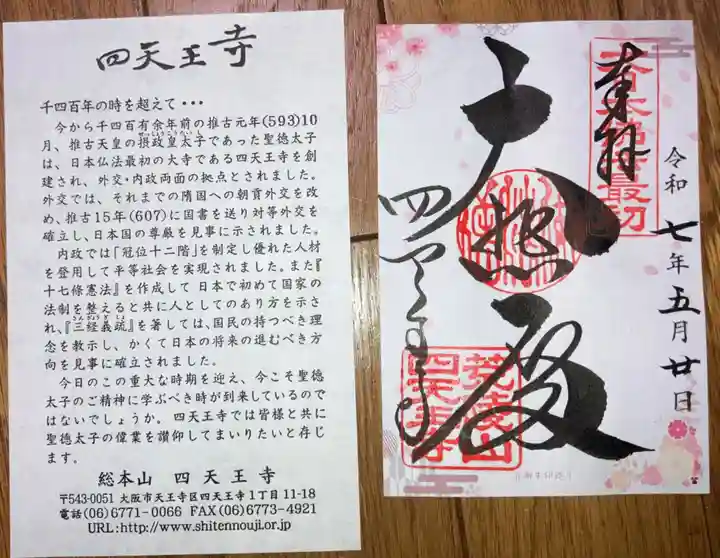 四天王寺
千四百年の時を超えて・・・
今から千四百有余年前の推古元年(593)10
月、推古天皇の摂政皇太子であった聖徳太子
は、日本仏法最初の大寺である四天王寺を創
建され、外交・内政両面の拠点とされました。
外交では、それまでの隋国への朝貢外交を改
め、推古15年(607)に国書を送り対等外交を
確立し、日本国の尊厳を見事に示されました。
内政では「冠位十二階」を制定し優れた人材
を登用して平等社会を実現されました。また『
十七條憲法』を作成して 日本で初めて国家の
法制を整えると共に人としてのあり方を示さ
れ、『三経義疏』を著しては、国民の持つべき理
念を教示し、かくて日本の将来の進むべき方
向を見事に確立されました。
今日のこの重大な時期を迎え、今こそ聖徳
太子のご精神に学ぶべき時が到来しているので
はないでしょうか。四天王寺では皆様と共に
聖徳太子の偉業を讃仰してまいりたいと存じ
ます。
総本山 四天王寺
〒543-0051 大阪市天王寺区四天王寺1丁目11-18
電話(06)6771-0066 FAX(06)6773-4921
URL:http://www.shitennouji.or.jp
奉拝
令和七年五月廿日
大悲殿
四天王寺
荒陵山
四天王寺